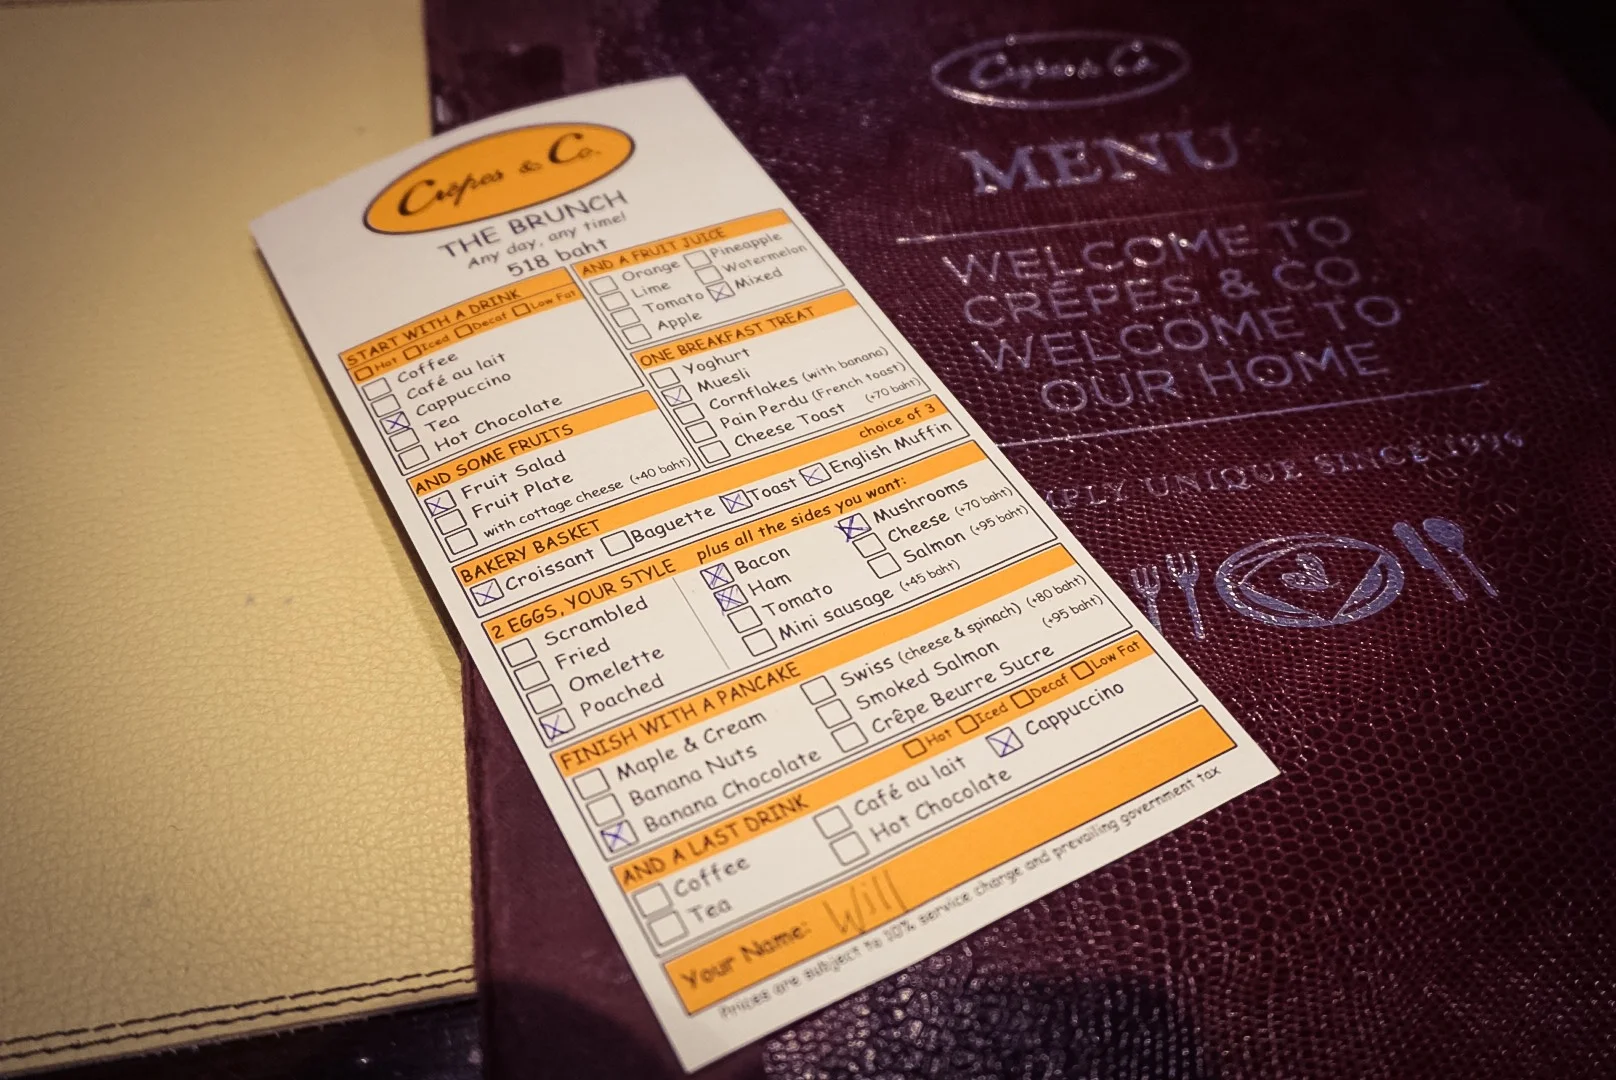 Crêpes & Co.
THE BRUNCH
Any day, any time!
518 baht
START WITH A DRINK
Hot Iced Decaf Low Fat
Coffee
Café au lait
Cappuccino
Tea
Hot Chocolate
AND A FRUIT JUICE
Orange Pineapple
Lime Watermelon
Tomato Mixed
Apple
AND SOME FRUITS
Fruit Salad
Fruit Plate
with cottage cheese (+40 baht)
ONE BREAKFAST TREAT
Yoghurt
Muesli
Cornflakes (with banana)
Pain Perdu (French toast)
Cheese Toast (+70 baht)
BAKERY BASKET choice of 3
Croissant Baguette Toast English Muffin
2 EGGS, YOUR STYLE plus all the sides you want:
Scrambled
Fried
Omelette
Poached
Bacon
Ham
Tomato
Mini sausage (+45 baht)
Mushrooms
Cheese (+70 baht)
Salmon (+95 baht)
FINISH WITH A PANCAKE
Maple & Cream
Banana Nuts
Banana Chocolate
Swiss (cheese & spinach) (+80 baht)
Smoked Salmon (+95 baht)
Crêpe Beurre Sucre
AND A LAST DRINK Hot Iced Decaf Low Fat
Coffee
Tea
Café au lait
Hot Chocolate
Cappuccino
Your Name: Will
Prices are subject to 10% service charge and prevailing government tax
Crêpes & Co.
MENU
WELCOME TO
CRÊPES & CO
WELCOME TO
OUR HOME
MPLY UNIQUE SINCE 1996